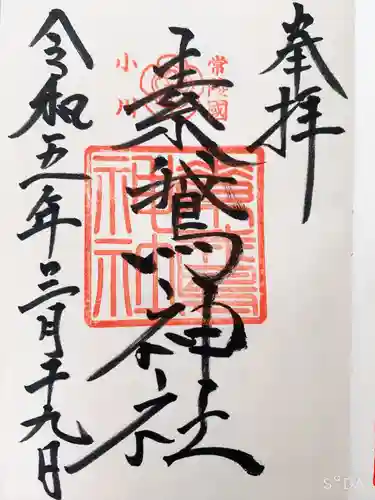 奉拝
常陸國
小川
素鵞神社
素鵞神社
令和五年三月十九日
S°DA